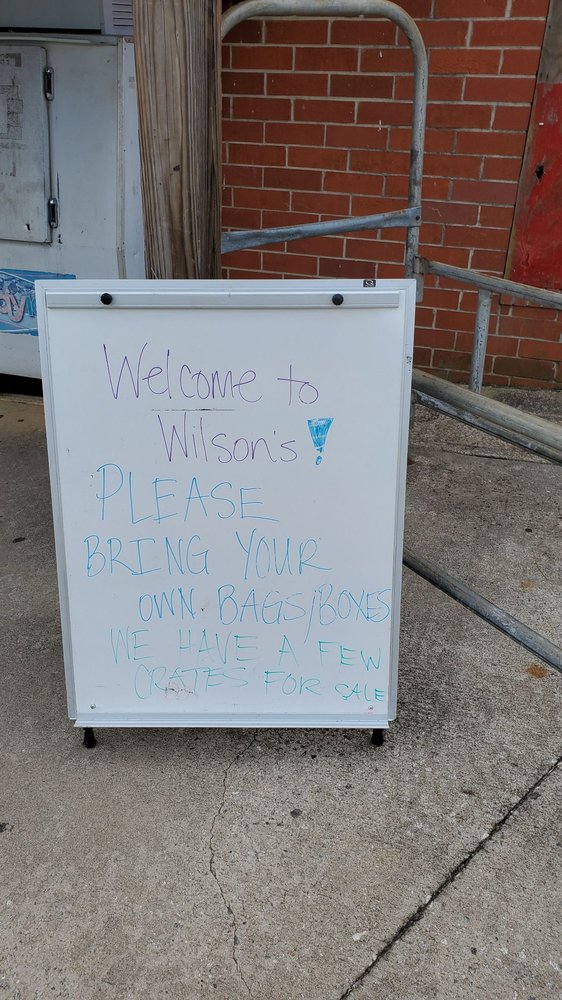 Welcome to
Wilson's!
PLEASE
BRING YOUR
OWN BAGS/BOXES
WE HAVE A FEW
CRATES FOR SALE